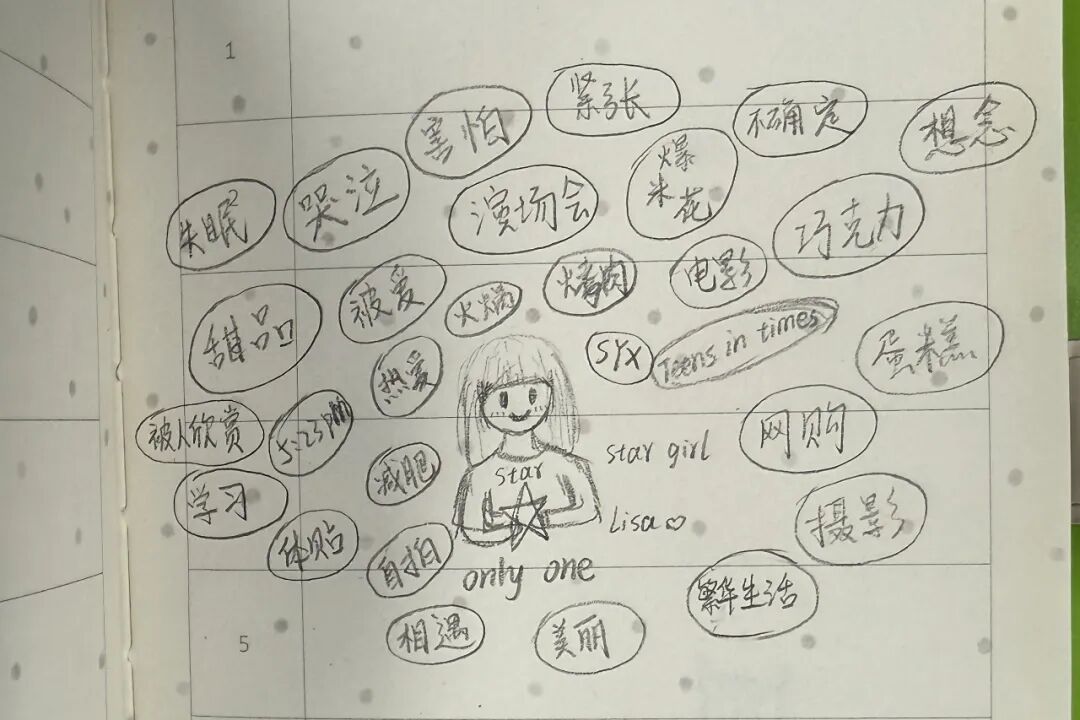 1
紧张
害怕
不确定
想念
失眠
哭泣
演场会
爆
米花
巧克力
甜品
被爱
火锅
烤肉
电影
SYX
Teens in times
蛋糕
热爱
被人欣赏
5:23pm
减肥
star
star girl
网购
学习
体贴
自拍
Lisa♡
摄影
only one
繁华生活
5
相遇
美丽